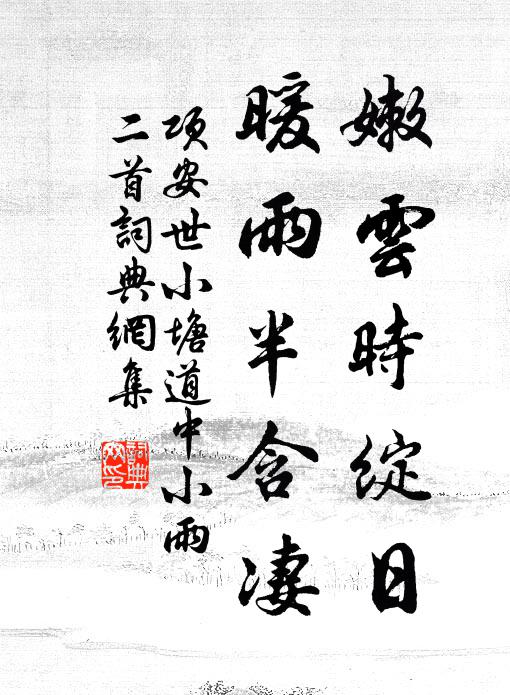 嫩雲時綻日
暖雨半含凄
項安世小塘道中小雨
二首詞典網集